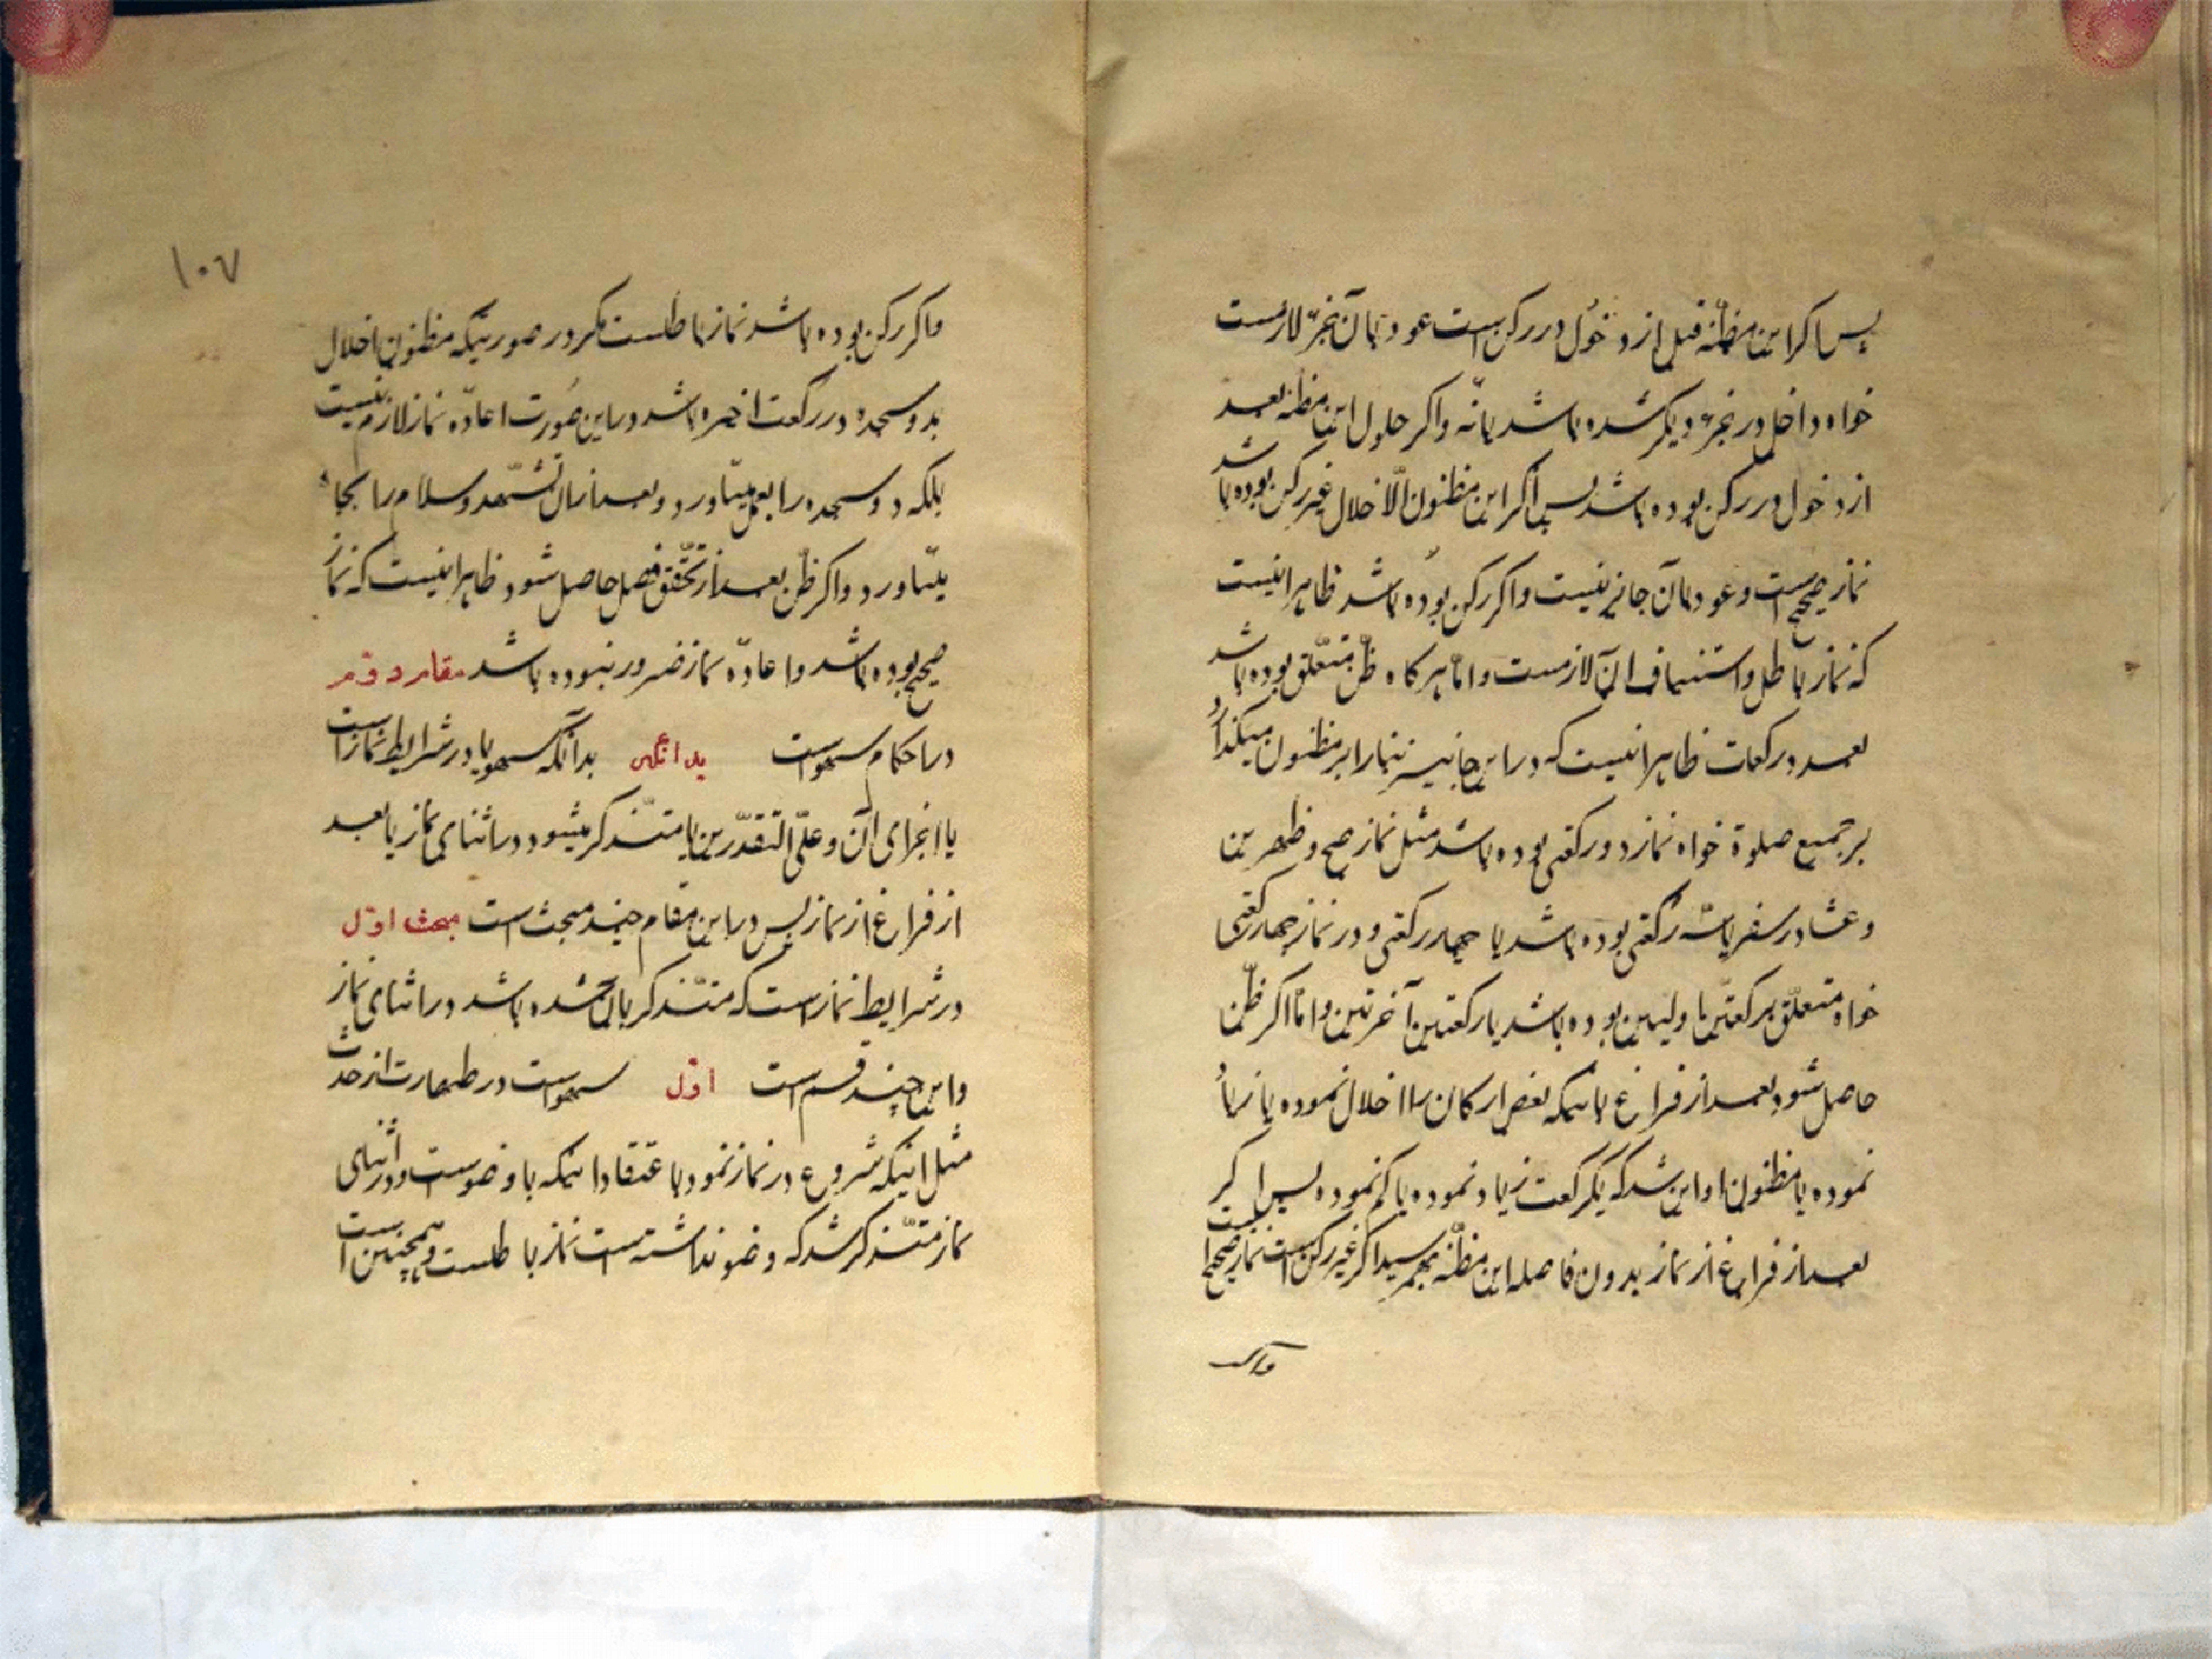 پس اگر این مظنه قبل از دخول در رکن است عود بآن جزء لازمست
خواه داخل در جزء دیگر شده باشد یا نه و اگر حلول این مظنه بعد
از دخول در رکن بوده باشد پس اگر این مظنون الاخلال غیر رکن بوده باشد
نماز صحیح است و عود بآن جایز نیست و اگر رکن بوده باشد ظاهر اینست
که نماز باطل و استیناف آن لازمست و اما هرگاه ظن متعلق بوده باشد
بعدد رکعات ظاهر اینست که در اینجا نیز بنا را بر مظنون میگذارد
بر جمیع صلوة خواه نماز دو رکعتی بوده باشد مثل نماز صبح و ظهرین
و عشا در سفر یا سه رکعتی بوده باشد یا چهار رکعتی و در نماز چهار رکعتی
خواه متعلق برکعتین اولیین بوده باشد یا رکعتین آخرتین و اما اگر ظن
حاصل شود بعد از فراغ باینکه بعض ارکان را اخلال نموده یا زیاد
نموده یا مظنون او این شد که یکرکعت زیاد نموده یا کم نموده پس اگر
بعد از فراغ از نماز بدون فاصله این مظنه بهمرسید اگر غیر رکن است نماز صحیح است
و اگر
۱۰۷
و اگر رکن بوده باشد نماز باطلست مگر در صورتیکه مظنون اخلال
بدو سجده در رکعت اخیره باشد در این صورت اعاده نماز لازم نیست
بلکه دو سجده را بعمل میآورد و بعد از آن تشهد و سلام را بجا
میآورد و اگر ظن بعد از تحقق فصل حاصل شود ظاهر اینست که نماز
صحیح بوده باشد و اعاده نماز ضرور نبوده باشد مقام دوّم
در احکام سهو است بدانکه سهو یا در شرایط نماز است
یا اجزای آن و علی التقدیرین یا متذکر میشود در اثنای نماز یا بعد
از فراغ از نماز پس در این مقام چند مبحث است مبحث اوّل
در شرایط نماز است که متذکر بآن شده باشد در اثنای نماز
و این چند قسم است اوّل سهو است در طهارت از حدث
مثل اینکه شروع در نماز نمود باعتقاد اینکه با وضوست و در اثنای
نماز متذکر شد که وضو نداشته است نماز باطلست و همچنین است